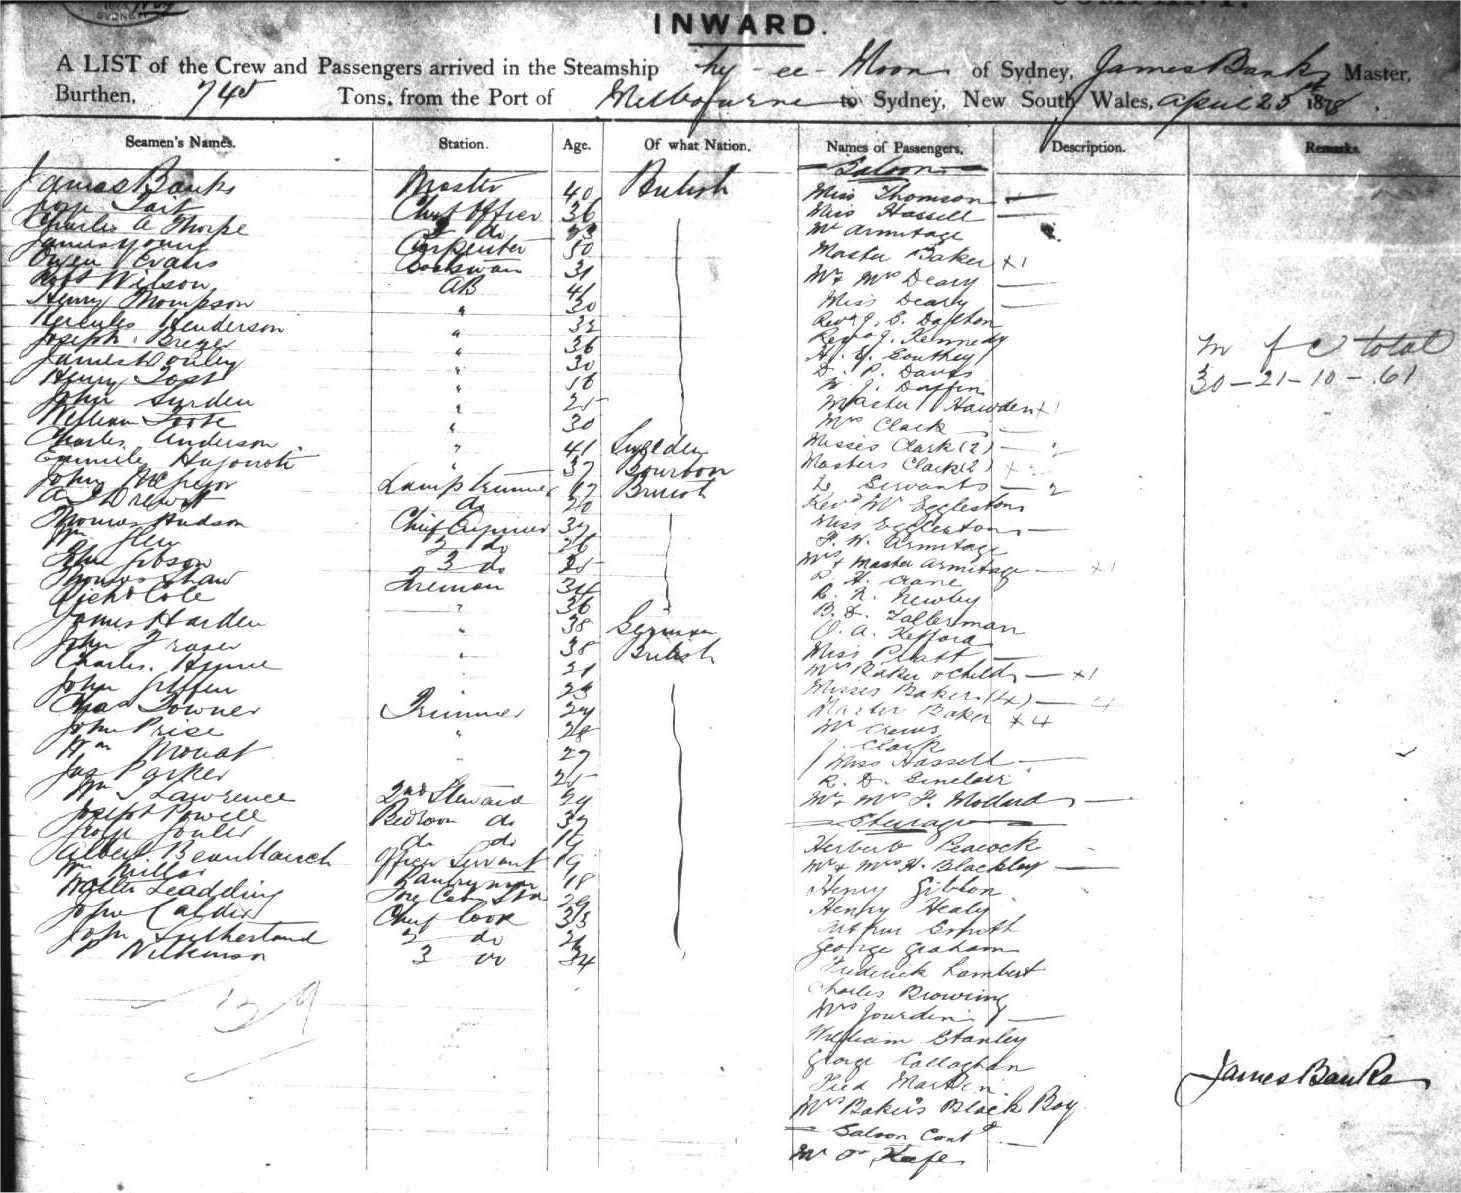 INWARD.
A LIST of the Crew and Passengers arrived in the Steamship Ly-ee-Moon of Sydney, James Banks Master,
Burthen, Tons, from the Port of Melbourne to Sydney, New South Wales, April 25 1878.
Seamen's Names. Station. Age. Of what Nation. Names of Passengers. Description. Remarks.
Saloon
James Banks Master 40 British Miss Thomson
Chief Officer 36 Miss Hassell
Charles A Thorpe 2 do 23 Mr Armitage
James Young Carpenter 50 Master Baker x1
Owen Evans 31 Mr & Mrs Deary
Robt Wilson AB 41 Miss Deary
Henry Thompson " 30 Revd J. S. Dalton
Hercules Henderson " 32 Revd J. Kennedy
Joseph Breyer " 36 H. Y. Southey
James Donley " 30 D. P. Davis
Henry " 18 W. J. Daffin
John Surden " 25 Master Hawden x1
William Foote " 30 Mrs Clark
Charles Anderson " 41 Sweden Misses Clark (2)
" 37 Bourbon Masters Clark (2)
John Lamp trimmer British Do Servants 2
A Drewitt do 20 Revd W Eggleston
Thomas Hudson Chief Engineer 37 Miss Eggleston
Wm 2 do 26 F. W. Armitage
Gibson 3 do 25 Mrs & Master Armitage x1
Thomas Shaw Fireman 34 H. Crane
Richd Cole " 36 R. N. Newby
James Harden " 38 German B. D. Fallerman
John Fraser " 38 British O. A. Kefford
Charles 21 Miss Pratt
John 23 Mrs Baker & Child x1
Chas Downer Trimmer 24 Misses Baker (4) 4
John Price " 28 Master Baker x4
Wm Mouat 27 Mr Crews
Jas Parker 25 J. Clark
Wm J Lawrence 2nd Steward 29 Miss Hassell
Joseph Powell Bedroom do 37 R. D. Sinclair
do do 19 Mr & Mrs F. Mollard
Albert Officers Servant 19 Steerage
Wm Millar Pantryman 18 Herbert Peacock
Walter Leadding Fore Cabin Std 29 Mr & Mrs H. Blackley
John Calder Chief Cook 33 Henry Gibbon
John Sutherland 2 do 26 Henry Healy
P Wilkinson 3 do 34 Smith
George Graham
Frederick Lambert
Charles Browning
Mrs Jourdin
William Stanley
George Callaghan
Fred Martin
Mrs Baker's Black Boy
Saloon Contd
Mr O'Keefe
m f c total
30 - 21 - 10 - 61
39
James Banks